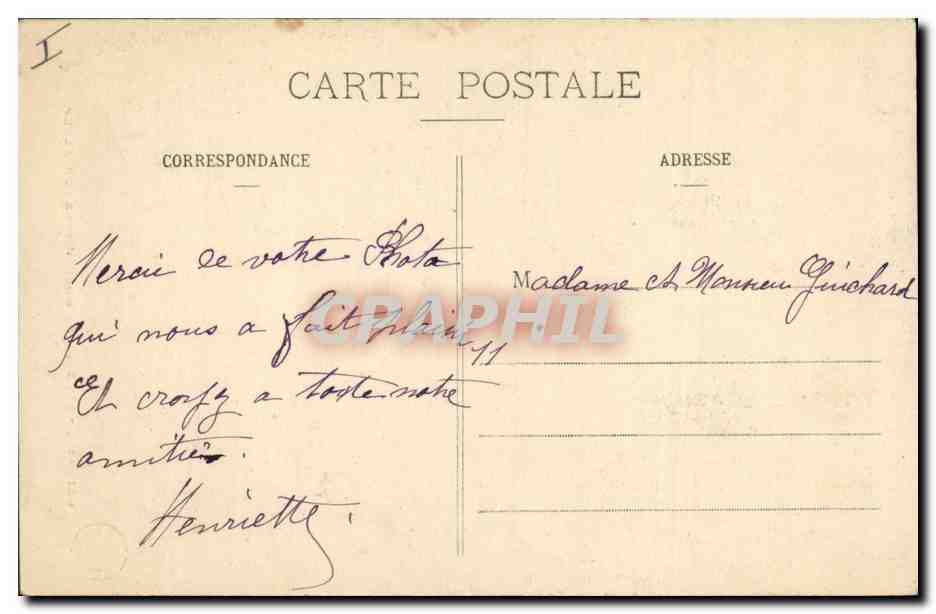 I
CARTE POSTALE
CORRESPONDANCE
Merci de votre Photo
qui nous a fait plaisir
Et croyez a toute notre
amitié.
Henriette.
ADRESSE
Madame et Monsieur Guichard
CPARAPHIL